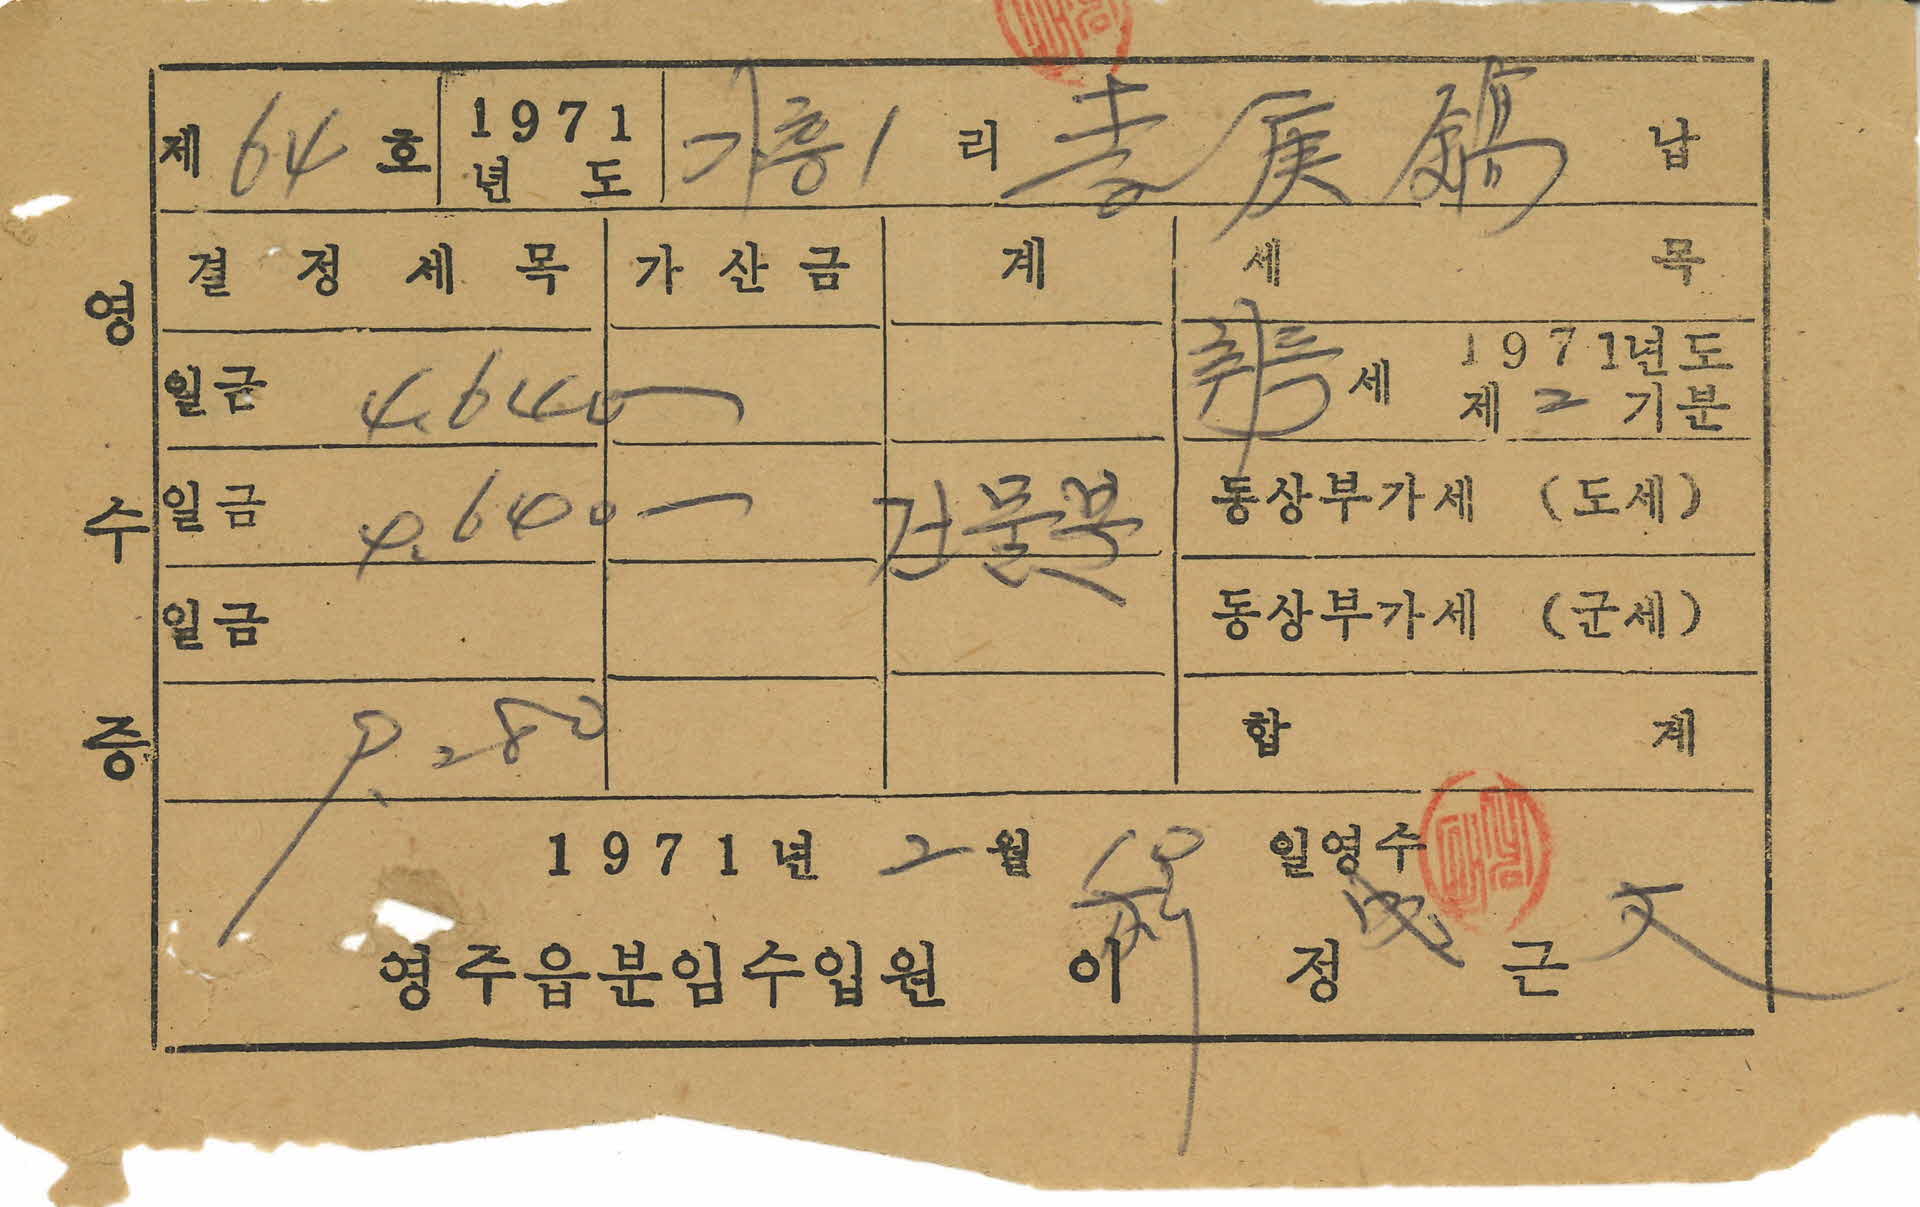 영수증
제 64 호 1971년도 가흥1 리 李 납
결정세목 가산금 계 세목
일금 4.640 취득세 1971년도 제 2 기분
일금 4.640 건물분 동상부가세 (도세)
일금 동상부가세 (군세)
9.280 합계
1971년 2월 일영수
영주읍분임수입원 이정근 文